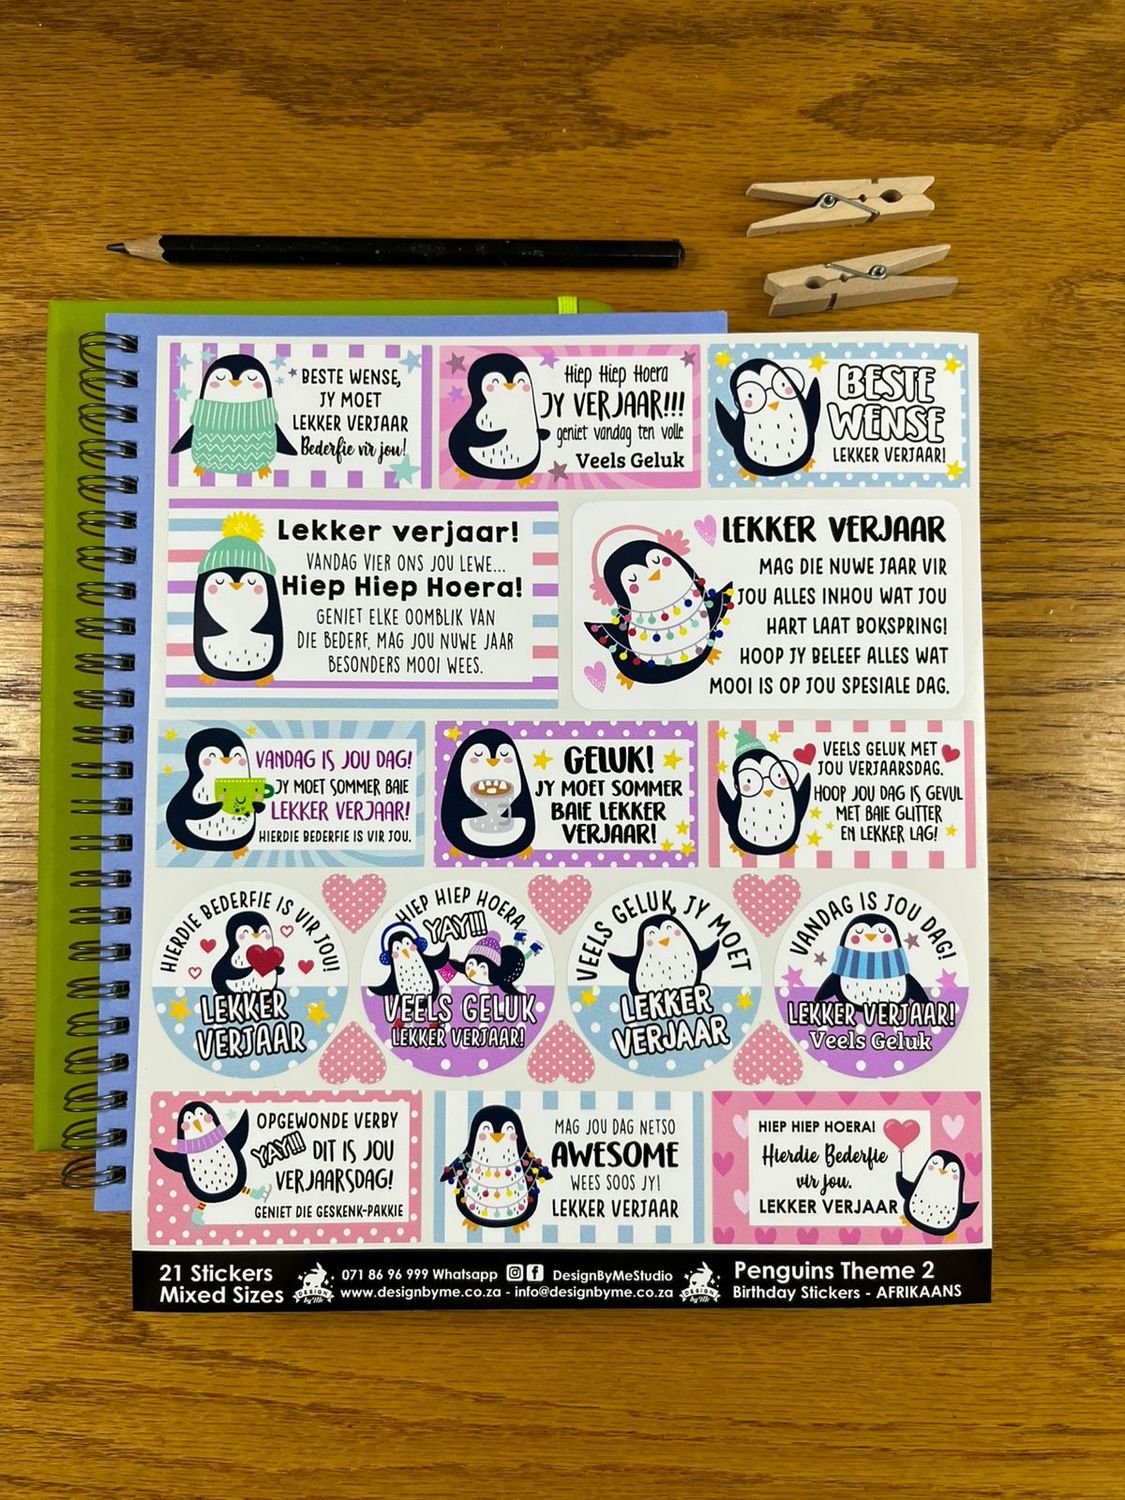 BESTE WENSE,
JY MOET
LEKKER VERJAAR
Bederfie vir jou!
Hiep Hiep Hoera
JY VERJAAR!!!
geniet vandag ten volle
Veels Geluk
BESTE
WENSE
LEKKER VERJAAR!
Lekker verjaar!
VANDAG VIER ONS JOU LEWE...
Hiep Hiep Hoera!
GENIET ELKE OOMBLIK VAN
DIE BEDERF, MAG JOU NUWE JAAR
BESONDERS MOOI WEES.
LEKKER VERJAAR
MAG DIE NUWE JAAR VIR
JOU ALLES INHOU WAT JOU
HART LAAT BOKSPRING!
HOOP JY BELEEF ALLES WAT
MOOI IS OP JOU SPESIALE DAG.
VANDAG IS JOU DAG!
JY MOET SOMMER BAIE
LEKKER VERJAAR!
HIERDIE BEDERFIE IS VIR JOU.
GELUK!
JY MOET SOMMER
BAIE LEKKER
VERJAAR!
VEELS GELUK MET
JOU VERJAARSDAG.
HOOP JOU DAG IS GEVUL
MET BAIE GLITTER
EN LEKKER LAG!
HIERDIE BEDERFIE IS VIR JOU!
LEKKER
VERJAAR
HIEP HIEP HOERA
YAY!!!
VEELS GELUK
LEKKER VERJAAR!
VEELS GELUK, JY MOET
LEKKER
VERJAAR
VANDAG IS JOU DAG!
LEKKER VERJAAR!
Veels Geluk
OPGEWONDE VERBY
YAY!!! DIT IS JOU
VERJAARSDAG!
GENIET DIE GESKENK-PAKKIE
MAG JOU DAG NETSO
AWESOME
WEES SOOS JY!
LEKKER VERJAAR
HIEP HIEP HOERA!
Hierdie Bederfie
vir jou.
LEKKER VERJAAR
21 Stickers
Mixed Sizes
DESIGN
by Me
071 86 96 999 Whatsapp DesignByMeStudio
www.designbyme.co.za - info@designbyme.co.za
DESIGN
by Me
Penguins Theme 2
Birthday Stickers - AFRIKAANS